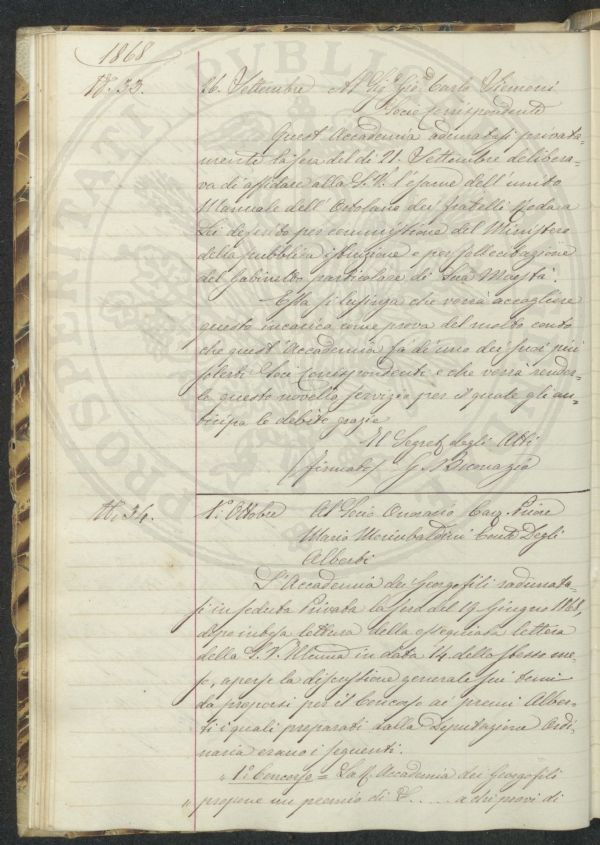 1868
N. 33. 26. Settembre Al Sig. Gio. Carlo Siemoni
Socio Corrispondente
Quest'Accademia adunatasi privata=
mente la sera del dì 21. Settembre delibera=
va di affidare alla S. V. l'esame dell'unito
Manuale dell'Ortolano dei fratelli Roda a
Lei deferito per commissione del Ministero
della pubblica istruzione e per sollecitazione
del Gabinetto particolare di Sua Maestà.
Essa si lusinga che vorrà accogliere
questo incarico come prova del molto conto
che quest'Accademia fa di uno dei suoi più
solerti Soci Corrispondenti e che vorrà render=
le questo novello servizio per il quale gli an=
ticipa le debite grazie
Il Segret. degli Atti
(firmato) G.
N. 34. 1°. Ottobre Al Socio Onorario Cav. Priore
Mario Mori Ubaldini Conte Degli
Alberti
L'Accademia dei Georgofili radunata=
si in seduta Privata la sera del 19 Giugno 1868,
dopo intesa lettura della ossequiosa lettera
della S. V. Illma in data 14 dello stesso me=
se, aperse la discussione generale sui temi
da proporsi per il Concorso ai premi Alber=
ti i quali preparati dalla Deputazione Ordi=
naria erano i seguenti.
" 1°. Concorso = La R. Accademia dei Georgofili
" propone un premio di £...... a chi provi di
PROSPERITATI PUBLICAE